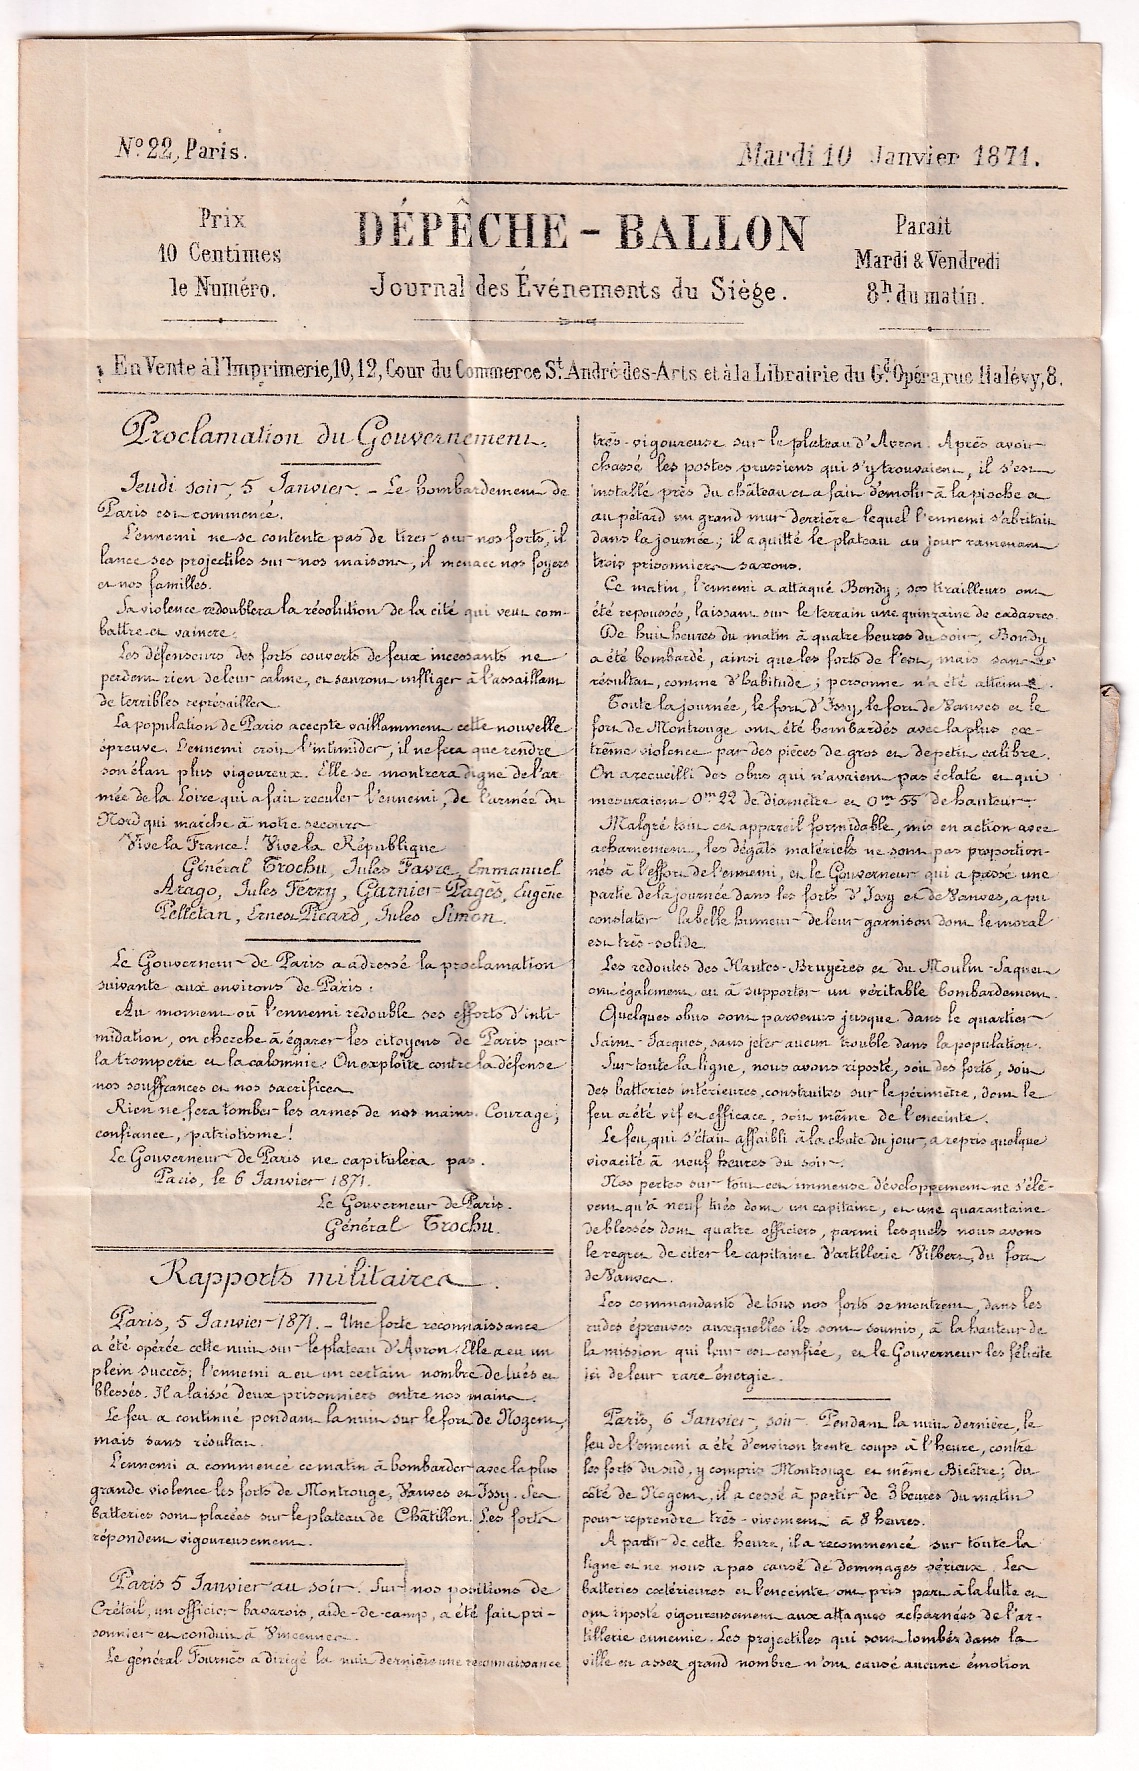 Nº 22, Paris.
Mardi 10 Janvier 1871.
Prix
10 Centimes
le Numéro.
DÉPÊCHE - BALLON
Journal des Événements du Siège.
Parait
Mardi & Vendredi
8h du matin.
En Vente à l'Imprimerie, 10, 12, Cour du Commerce St André-des-Arts et à la Librairie du Gd Opéra, rue Halévy, 8.
Proclamation du Gouvernement.
Jeudi soir, 5 Janvier. - Le bombardement de
Paris est commencé.
L'ennemi ne se contente pas de tirer sur nos forts, il
lance ses projectiles sur nos maisons, il menace nos foyers
et nos familles.
Sa violence redoublera la résolution de la cité qui veut com-
battre et vaincre.
Les défenseurs des forts couverts de feux incessants ne
perdent rien de leur calme, et sauront infliger à l'assaillant
de terribles représailles.
La population de Paris accepte vaillamment cette nouvelle
épreuve. L'ennemi croit l'intimider, il ne fera que rendre
son élan plus vigoureux. Elle se montrera digne de l'ar
mée de la Loire qui a fait reculer l'ennemi, de l'armée du
Nord qui marche à notre secours
Vive la France! Vive la République
Général Trochu, Jules Favre, Emmanuel
Arago, Jules Ferry, Garnier-Pagès, Eugène
Pelletan, Ernest Picard, Jules Simon.
Le Gouverneur de Paris a adressé la proclamation
suivante aux environs de Paris :
Au moment où l'ennemi redouble ses efforts d'inti-
midation, on cherche à égarer les citoyens de Paris par
la tromperie et la calomnie. On exploite contre la défense
nos souffrances et nos sacrifices
Rien ne fera tomber les armes de nos mains. Courage,
confiance, patriotisme!
Le Gouverneur de Paris ne capitulera pas.
Paris, le 6 Janvier 1871.
Le Gouverneur de Paris.
Général Trochu.
Rapports militaires.
Paris, 5 Janvier 1871. - Une forte reconnaissance
a été opérée cette nuit sur le plateau d'Avron. Elle a eu un
plein succès; l'ennemi a eu un certain nombre de tués et
blessés. Il a laissé deux prisonniers entre nos mains.
Le feu a continué pendant la nuit sur le fort de Nogent,
mais sans résultat.
L'ennemi a commencé ce matin à bombarder avec la plus
grande violence les forts de Montrouge, Vanves et Issy. Ses
batteries sont placées sur le plateau de Châtillon. Les forts
répondent vigoureusement.
Paris 5 Janvier au soir. Sur nos positions de
Créteil, un officier bavarois, aide-de-camp, a été fait pri-
sonnier et conduit à Vincennes.
Le général Fournès a dirigé la nuit dernière une reconnaissance
très-vigoureuse sur le plateau d'Avron. Après avoir
chassé les postes prussiens qui s'y trouvaient, il s'est
installé près du château et a fait démolir à la pioche et
au pétard un grand mur derrière lequel l'ennemi s'abritait
dans la journée; il a quitté le plateau au jour ramenant
trois prisonniers saxons.
Ce matin, l'ennemi a attaqué Bondy; ses tirailleurs ont
été repoussés, laissant sur le terrain une quinzaine de cadavres.
De huit heures du matin à quatre heures du soir, Bondy
a été bombardé, ainsi que les forts de l'est, mais sans
résultat, comme d'habitude; personne n'a été atteint.
Toute la journée, le fort d'Issy, le fort de Vanves et le
fort de Montrouge ont été bombardés avec la plus ex-
trême violence par des pièces de gros et de petit calibre.
On a recueilli des obus qui n'avaient pas éclaté et qui
mesuraient 0m 22 de diamètre et 0m 55 de hauteur.
Malgré tout cet appareil formidable, mis en action avec
acharnement, les dégâts matériels ne sont pas proportion-
nés à l'effort de l'ennemi, et le Gouverneur qui a passé une
partie de la journée dans les forts d'Issy et de Vanves, a pu
constater la belle humeur de leur garnison dont le moral
est très-solide.
Les redoutes des Hautes-Bruyères et du Moulin-Saquet
ont également eu à supporter un véritable bombardement.
Quelques obus sont parvenus jusque dans le quartier
Saint-Jacques, sans jeter aucun trouble dans la population.
Sur toute la ligne, nous avons riposté, soit des forts, soit
des batteries intérieures, construites sur le périmètre, dont le
feu a été vif et efficace, soit même de l'enceinte.
Le feu, qui s'était affaibli à la chute du jour, a repris quelque
vivacité à neuf heures du soir.
Nos pertes sur tout cet immense développement ne s'élè-
vent qu'à neuf tués dont un capitaine, et une quarantaine
de blessés dont quatre officiers, parmi lesquels nous avons
le regret de citer le capitaine d'artillerie Vilbert, du fort
de Vanves.
Les commandants de tous nos forts se montrent, dans les
rudes épreuves auxquelles ils sont soumis, à la hauteur de
la mission qui leur est confiée, et le Gouverneur les félicite
ici de leur rare énergie.
Paris, 6 Janvier, soir. Pendant la nuit dernière, le
feu de l'ennemi a été d'environ trente coups à l'heure, contre
les forts du sud, y compris Montrouge et même Bicêtre; du
côté de Nogent, il a cessé à partir de 3 heures du matin
pour reprendre très-vivement à 8 heures.
A partir de cette heure, il a recommencé sur toute la
ligne et ne nous a pas causé de dommages sérieux. Les
batteries extérieures et l'enceinte ont pris part à la lutte et
ont riposté vigoureusement aux attaques acharnées de l'ar-
tillerie ennemie. Les projectiles qui sont tombés dans la
ville en assez grand nombre n'ont causé aucune émotion